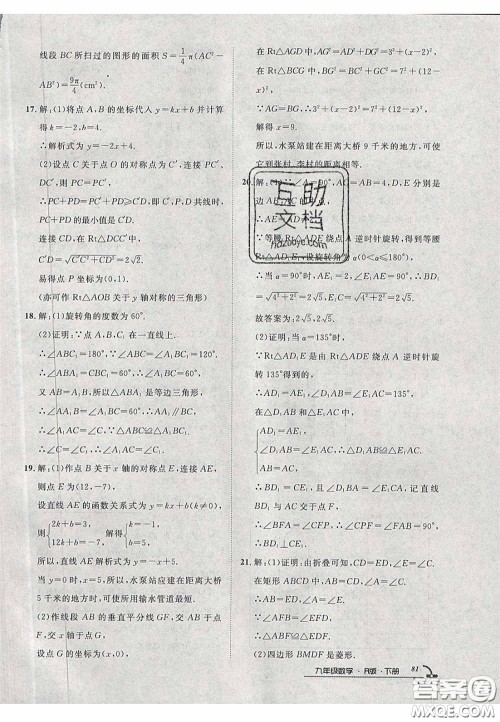 线段 BC 所扫过的图形的面积 S=1/4π(AC²-
BM²)=9π/4(cm²).
17.解:(1)将点 A、B 的坐标代入 y=kx+b 并计算得 k=-2,b=4.
∴解析式为 y=-2x+4.
(2)设点 C 关于点 O 的对称点为 C′,连接 PC′、
DC′,则 PC=PC′.
∴PC+PD=PC′+PD≥C′D,即 C′、P、D 共线时,
PC+PD 的最小值是 C′D.
连接 CD,在 Rt△DCC′中,
C′D=√(C′C²+CD²)=2√2.
易得点 P 坐标为(0,1).
(亦可作 Rt△AOB 关于 y 轴对称的三角形)
18.解:(1)旋转角的度数为 60°.
(2)证明:∵点 A、B、C₁ 在一条直线上,
∴∠ABC₁=180°,∵∠ABC=∠A₁BC₁=120°,
∴∠ABA₁=∠CBC₁=60°,∴∠A₁BC=60°.
又 AB=A₁B,所以△ABA₁ 是等边三角形,
∴∠AA₁B=∠A₁BC=60°,∴AA₁∥BC,
∴∠A₁AC=∠C,∵△ABC≌△A₁BC₁,
∴∠C=∠C₁,∴∠A₁AC=∠C₁.
19.解:(1)作点 B 关于 x 轴的对称点 E,连接 AE,
则点 E 为(12,-7),
设直线 AE 的函数关系式为 y=kx+b(k≠0),则
{2k+b=3, 12k+b=-7, 解得{k=-1, b=5.
∴直线 AE 解析式为 y=-x+5.
当 y=0 时,x=5,所以,水泵站应建在距离大桥
5 千米的地方时,可使所用输水管道最短.
(2)作线段 AB 的垂直平分线 GF,交 AB 于点 F,交
x 轴于点 G,设点 G 的坐标为(x,0),
在 Rt△AGD 中,AG²=AD²+DG²=3²+(x-2)²,
在 Rt△BCG 中,BG²=BC²+GC²=7²+(12-x)²,
∵AG=BG,∴3²+(x-2)²=7²+(12-x)²,
解得 x=9.
所以,水泵站建在距离大桥 9 千米的地方,可使
它到张村、李村的距离相等.
20.解:
AC=AB=4,D、E 分别是
∴AE=AD
∵等腰 Rt△ADE 绕点 A 逆时针旋转,得到等腰
Rt△AD₁E₁,设旋转角为 α(0<α≤180°),
∴当 α=90°时,AE₁=2,∠E₁AE=90°,
∴BD₁=√(4²+2²)=2√5,E₁C=√(4²+2²)=2√5.
故答案为:2√5,2√5.
(2)证明:当 α=135°时,
∵Rt△AD₁E 是由 Rt△ADE 绕点 A 逆时针旋
转 135°得到的.
∴AD₁=AE₁,∠D₁AB=∠E₁AC=135°,
∴△D₁AB≌△E₁AC.
∴BD₁=CE₁,且∠D₁BA=∠E₁CA.
设直线 BD₁ 与 AC 交于点 F,有
∠BFA=∠CFP,∴∠CPF=∠FAB=90°,
∴BD₁⊥CE₁.
21.解:(1)证明:由折叠可知,CD=ED,∠E=∠C.
在矩形 ABCD 中,AB=CD,∠A=∠C.
∴AB=ED,∠A=∠E.
∵∠AFB=∠EFD,
∴△AFB≌△EFD.
(2)四边形 BFDG 是菱形.
互助
文档
九年级数学·R版·下册 81
答案圈
MXQE.COM